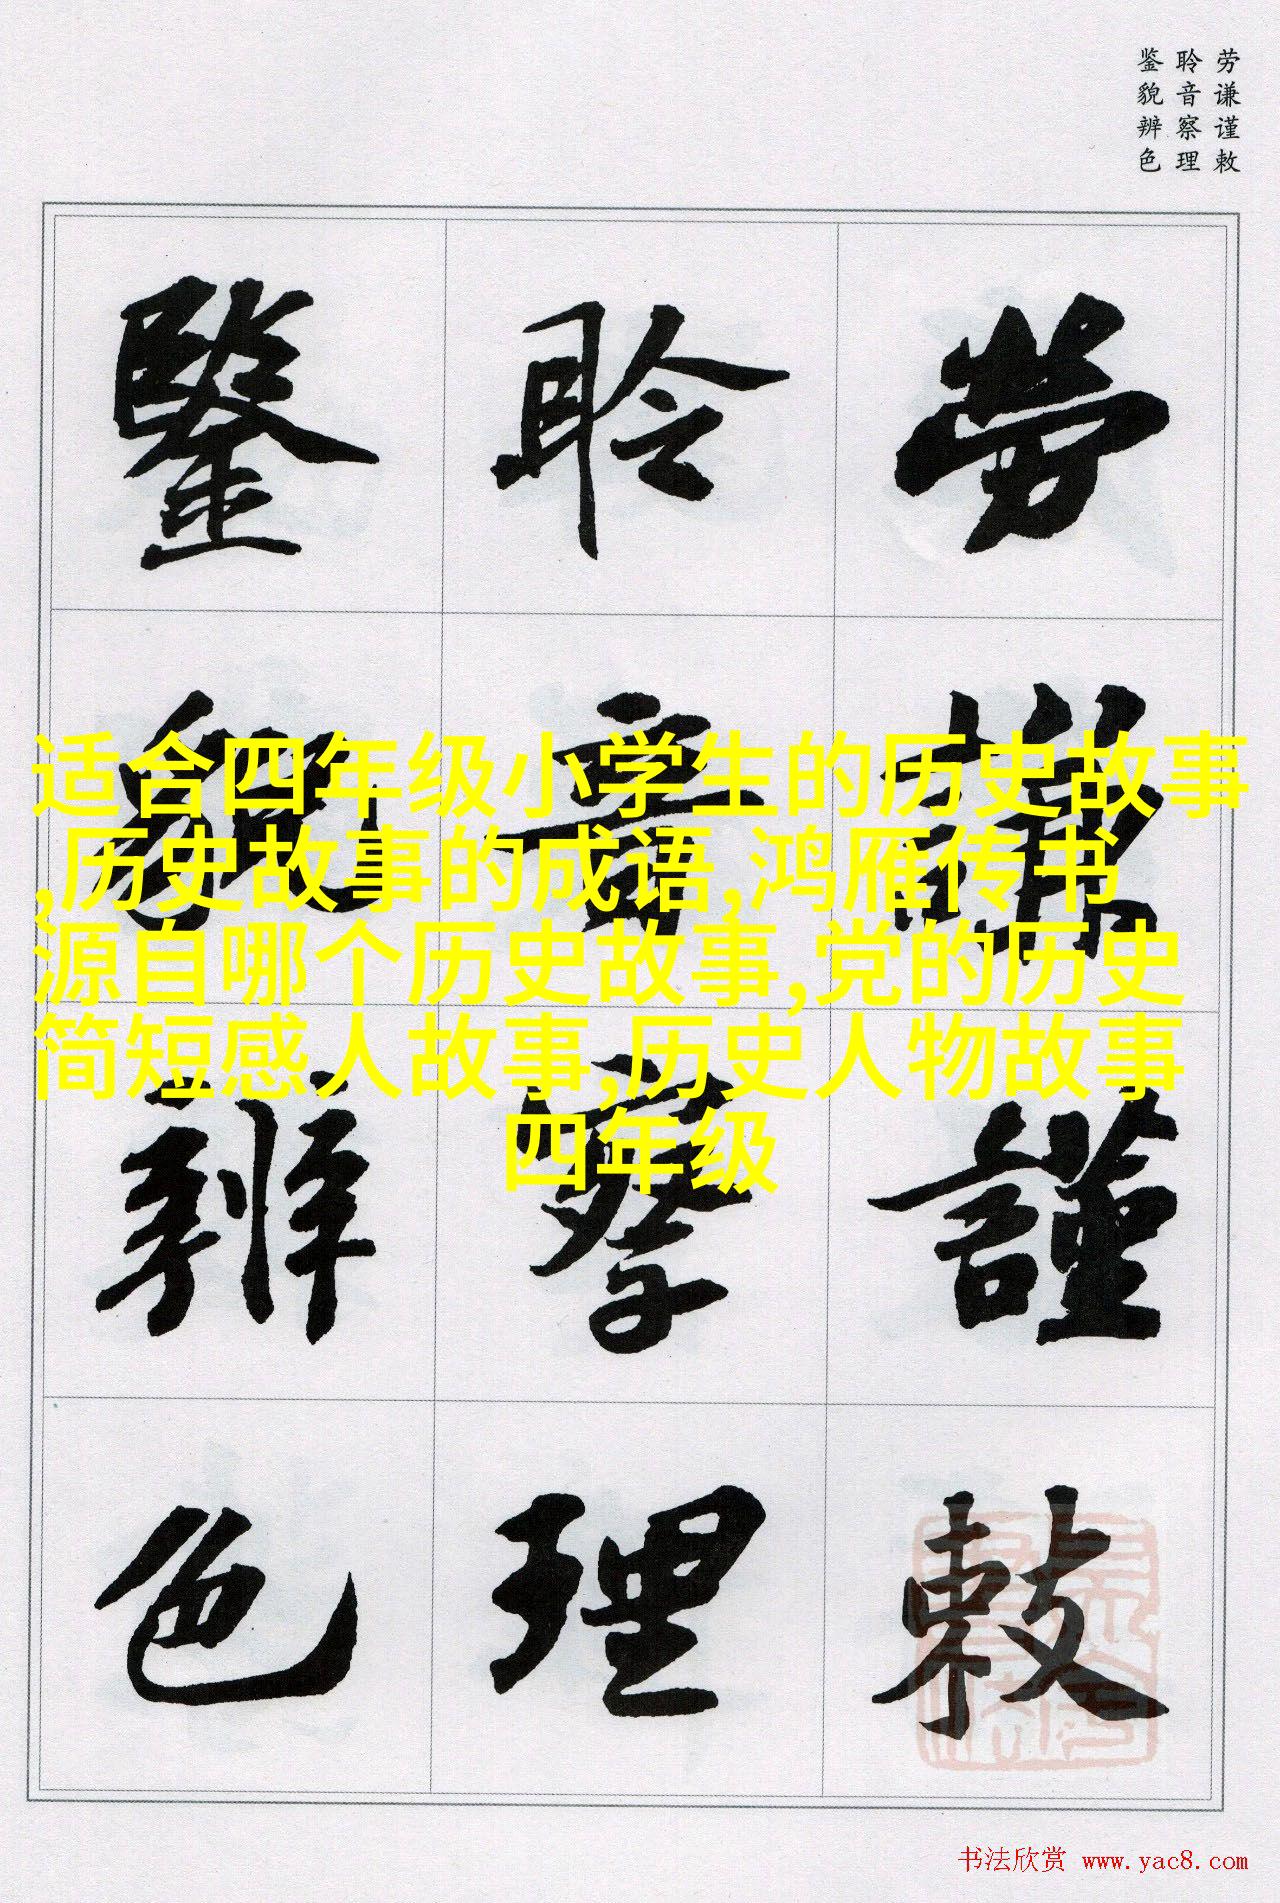 劳谦谨敕
聆音察理
鉴貌辨色
勞謙謹敕
聆音察理
鑒貌辨色
适合四年级小学生的历史故事
,历史故事的成语,鸿雁传书
源自哪个历史故事,党的历史
简短感人故事,历史人物故事
四年级
书法欣赏 www.yac8.com